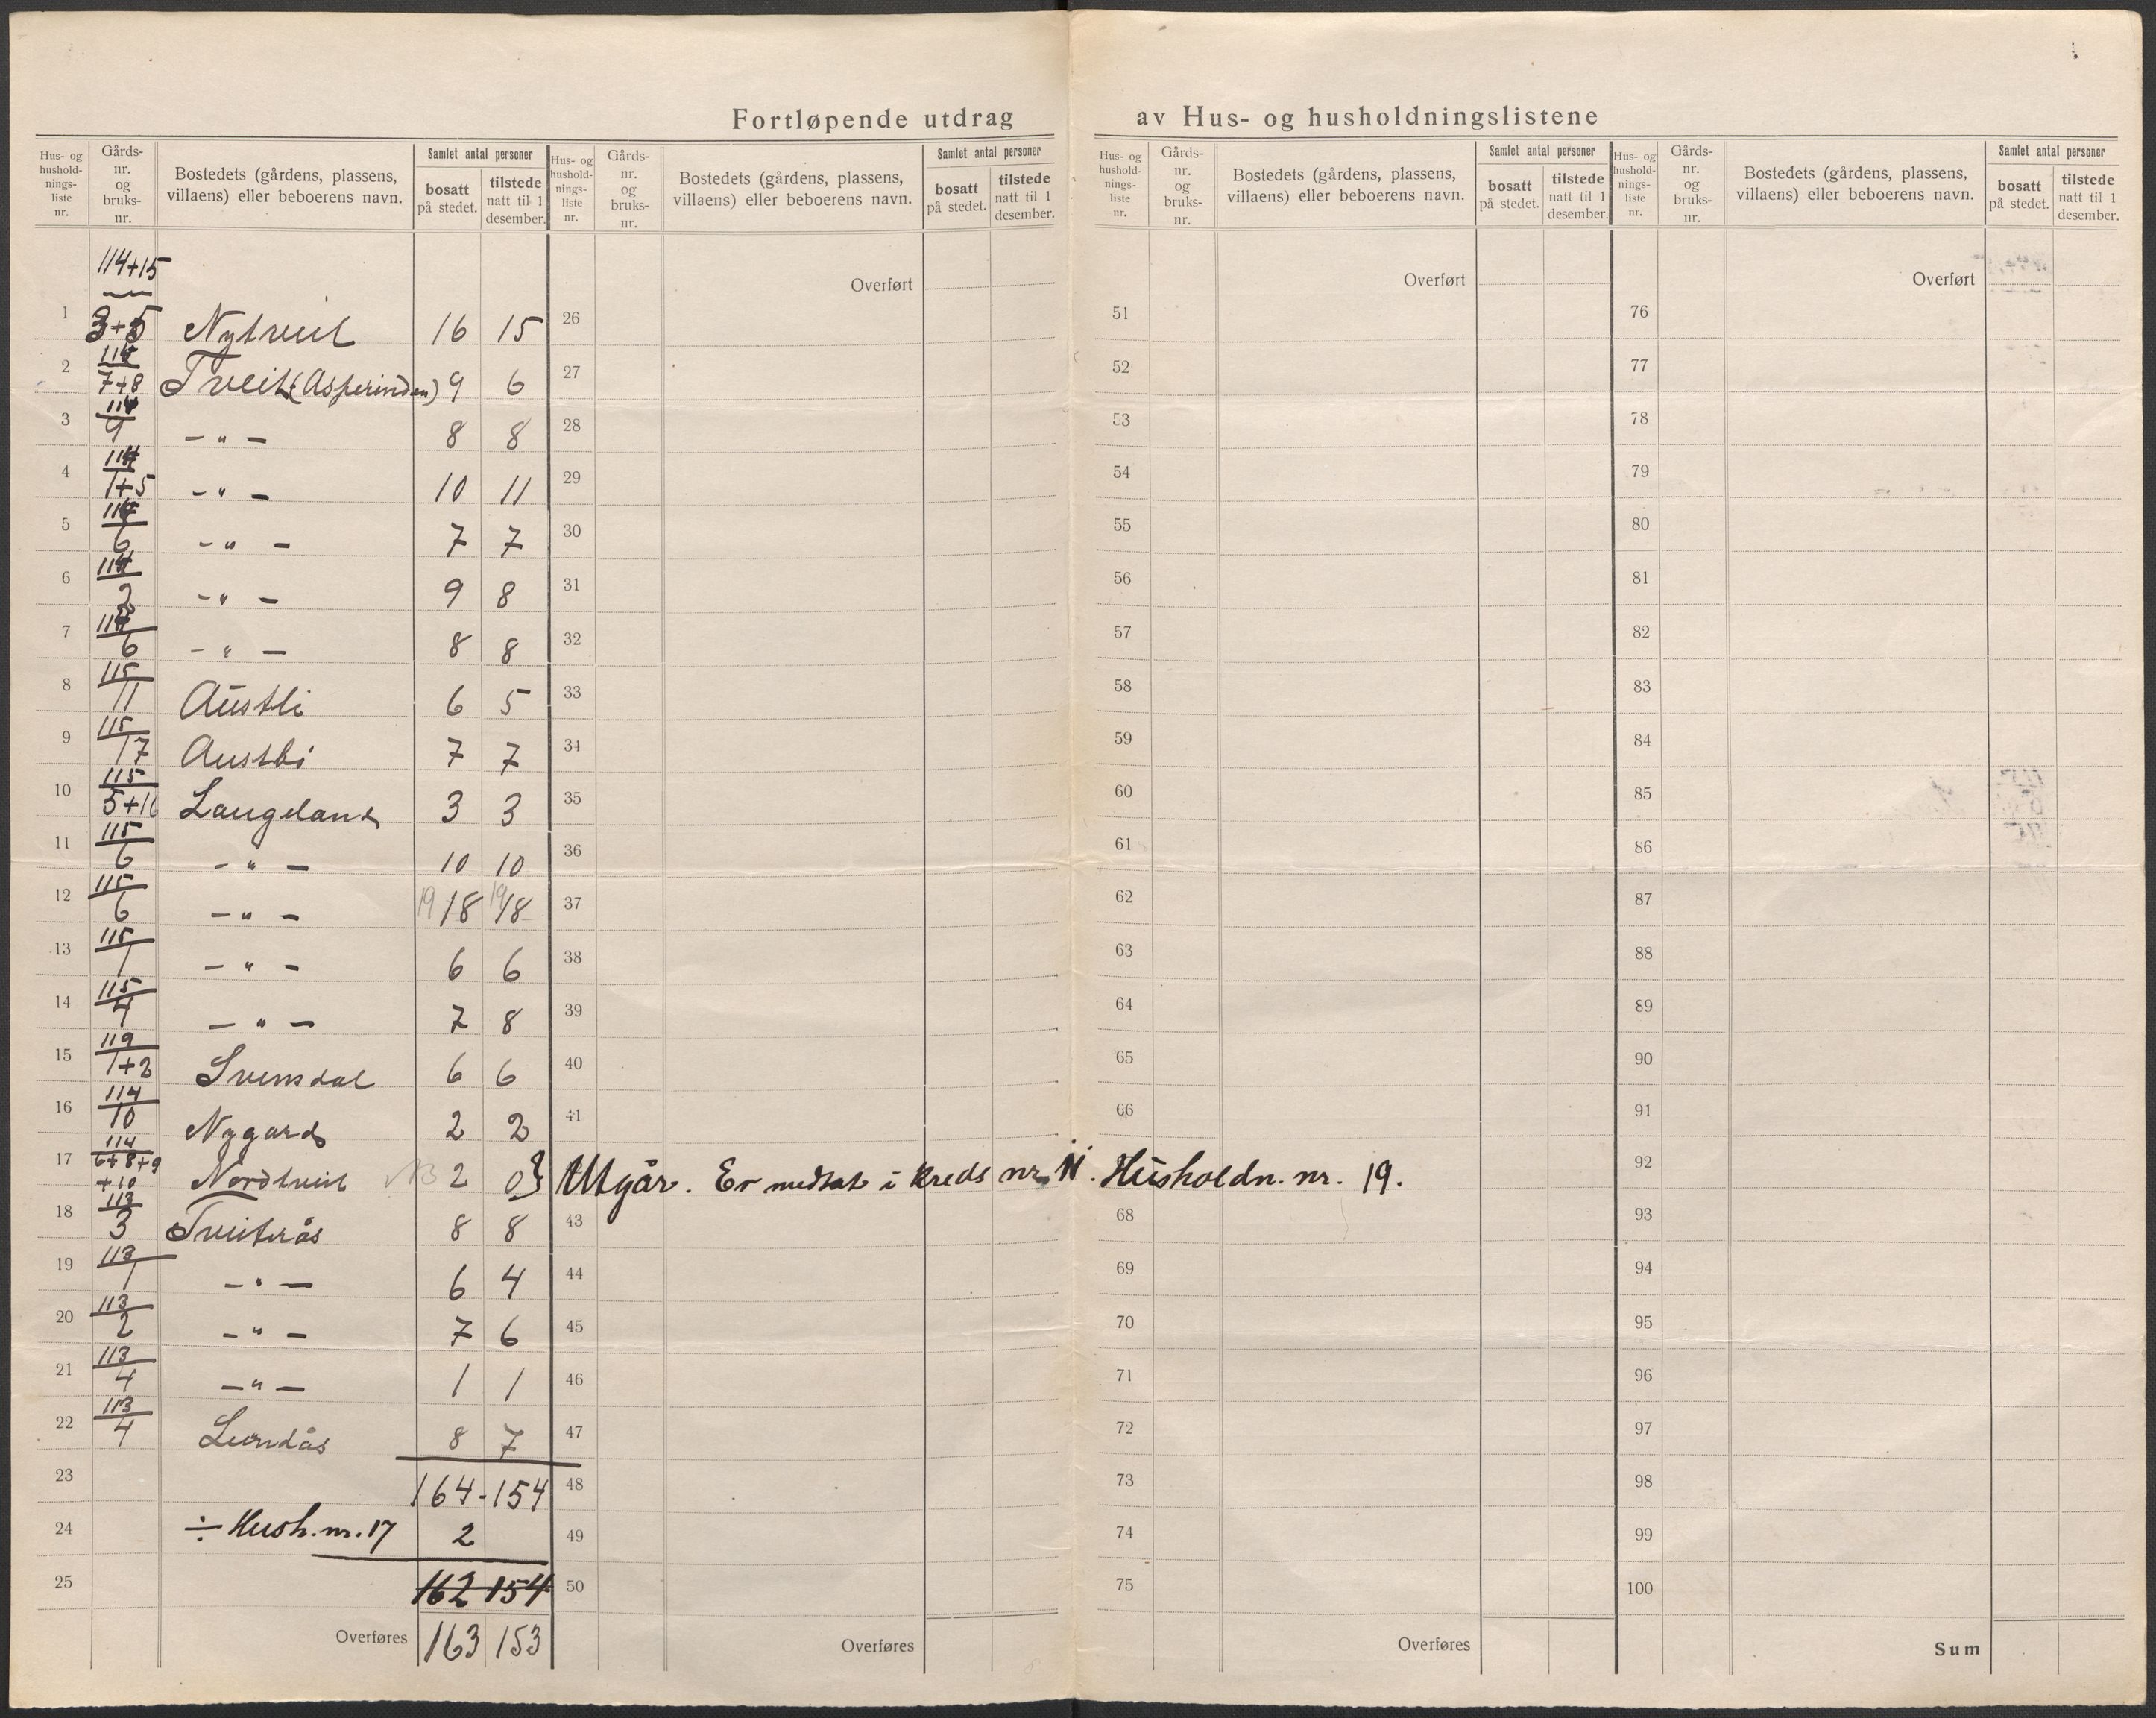 Fortløpende utdrag av Hus- og husholdningslistene
Hus- og husholdnings-liste nr. | Gårds-nr. og bruks-nr. | Bostedets (gårdens, plassens, villaens) eller beboerens navn. | Samlet antal personer | bosatt på stedet. | tilstede natt til 1 desember.
Hus- og husholdnings-liste nr. | Gårds-nr. og bruks-nr. | Bostedets (gårdens, plassens, villaens) eller beboerens navn. | Samlet antal personer | bosatt på stedet. | tilstede natt til 1 desember.
Hus- og husholdnings-liste nr. | Gårds-nr. og bruks-nr. | Bostedets (gårdens, plassens, villaens) eller beboerens navn. | Samlet antal personer | bosatt på stedet. | tilstede natt til 1 desember.
Hus- og husholdnings-liste nr. | Gårds-nr. og bruks-nr. | Bostedets (gårdens, plassens, villaens) eller beboerens navn. | Samlet antal personer | bosatt på stedet. | tilstede natt til 1 desember.
114+15
1 3+5 Nytveit 16 15
2 114/7+8 Tveit (Asperinden) 9 6
3 114/9 - " - 8 8
4 114/1+5 - " - 10 11
5 114/6 - " - 7 7
6 114/2 - " - 9 8
7 114/6 - " - 8 8
8 115/11 Austli 6 5
9 115/17 Austbi 7 7
10 115/5+16 Langeland 3 3
11 115/6 - " - 10 10
12 115/6 - " - 19 18 19 18
13 115/1 - " - 6 6
14 115/4 - " - 7 8
15 119/1+2 Svemdal 6 6
16 114/10 Nygard 2 2
17 114/6+8+9+10 Nordtveit 2 0} Utgår. Er medtat i kreds nr. 11. Husholdn. nr. 19.
18 113/3 Tveiterås 8 8
19 113/1 - " - 6 4
20 113/2 - " - 7 6
21 113/4 - " - 1 1
22 113/4 Lundås 8 7
23 164 - 154
24 ÷ Hush. nr. 17 2
25 162 154
Overføres 163 153
Overført
26
27
28
29
30
31
32
33
34
35
36
37
38
39
40
41
43
44
45
46
47
48
49
50
Overføres
Overført
51
52
53
54
55
56
57
58
59
60
61
62
63
64
65
66
68
69
70
71
72
73
74
75
Overføres
Overført
76
77
78
79
80
81
82
83
84
85
86
87
88
89
90
91
92
93
94
95
96
97
98
99
100
Sum